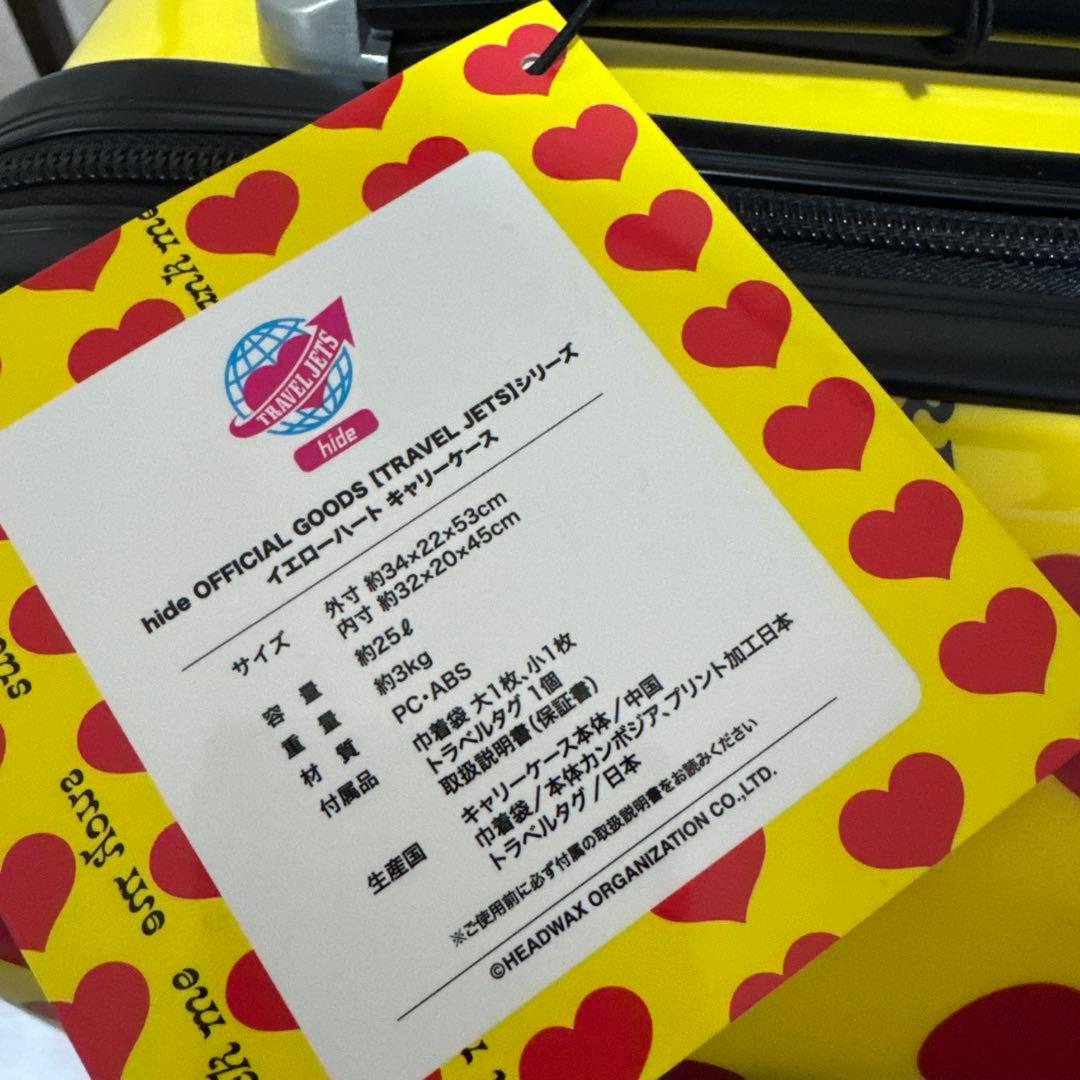 TRAVEL JETS
hide
hide OFFICIAL GOODS [TRAVEL JETS]シリーズ
イエローハート キャリーケース
サイズ 外寸 約34×22×53cm
内寸 約32×20×45cm
容量 約25ℓ
重量 約3kg
材質 PC・ABS
付属品 巾着袋 大1枚、小1枚
トラベルタグ 1個
取扱説明書(保証書)
生産国 キャリーケース本体/中国
巾着袋/本体カンボジア、プリント加工日本
トラベルタグ/日本
※ご使用前に必ず付属の取扱説明書をお読みください
©HEADWAX ORGANIZATION CO.,LTD.